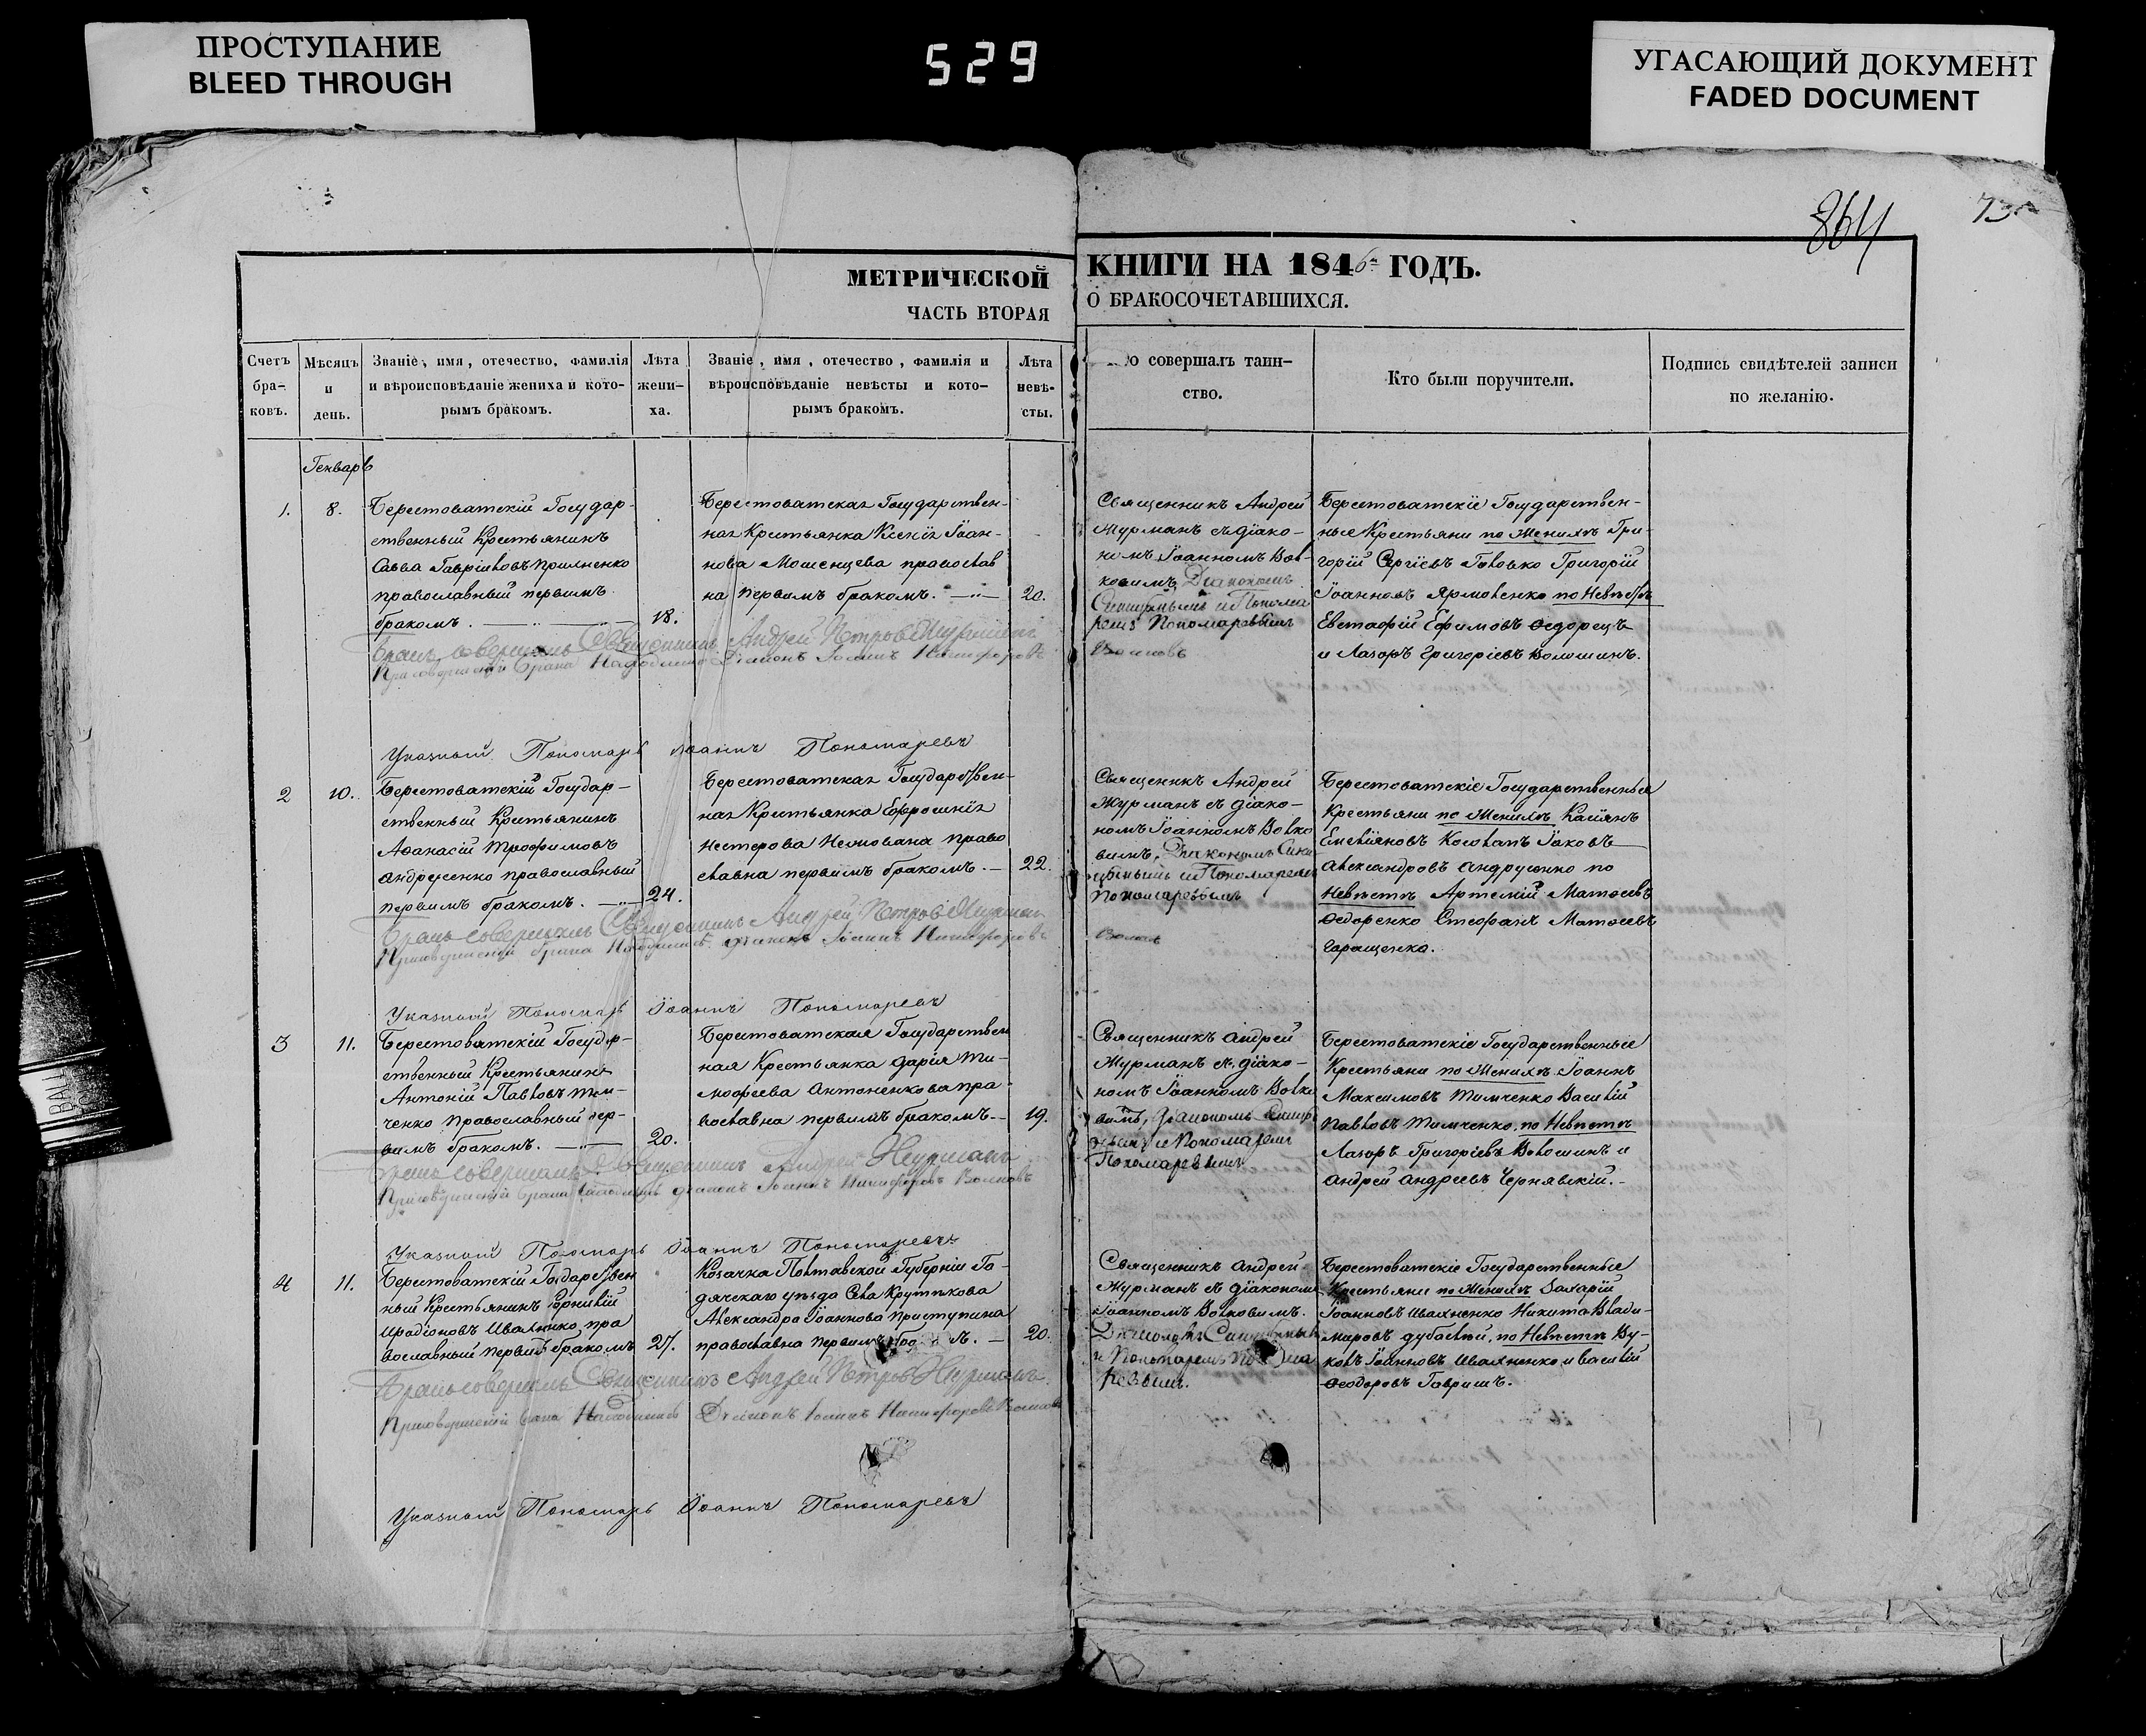 ПРОСТУПАНИЕ
BLEED THROUGH
529
УГАСАЮЩИЙ ДОКУМЕНТ
FADED DOCUMENT
864
МЕТРИЧЕСКОЙ КНИГИ НА 1846 ГОДЪ.
ЧАСТЬ ВТОРАЯ О БРАКОСОЧЕТАВШИХСЯ.
Счетъ бра-ковъ.
Мѣсяцъ и день.
Званіе, имя, отечество, фамилія
и вѣроисповѣданіе жениха и кото-
рымъ бракомъ.
Лѣта жени-ха.
Званіе, имя, отечество, фамилія и
вѣроисповѣданіе невѣсты и кото-
рымъ бракомъ.
Лѣта невѣ-сты.
о совершалъ таин-
ство.
Кто были поручители.
Подпись свидѣтелей записи
по желанію.
Генварь
1. 8.
Берестоватскій Государ-
ственный Крестьянинъ
Савва Гавріиловъ
православный первымъ
бракомъ. 18.
Берестоватская Государствен-
ная Крестьянка Ксенія Іоан-
нова Мошенцева православ
на первымъ бракомъ. 20.
Священникъ Андрей
Журманъ съ діако-
номъ Іоанномъ Вол-
ковимъ
Пономаревымъ
Берестоватскіе Государствен-
ные Крестьяни по Женихѣ Гри-
горій Сергіевъ Головко Григорій
Іоанновъ Ярмоленко по Невѣстѣ
Евстафій Ефимовъ Ѳедорецъ
и Лазоръ Григоріевъ Волошинъ.
Бракъ совершалъ Священникъ Андрей Петровъ Журманъ
Діаконъ Іоаннъ Никифоровъ
Указный Пономарь Іоаннъ Пономаревъ
2 10.
Берестоватскій Государ-
ственный Крестьянинъ
Аѳанасій Трофимовъ
Андрусенко православный
первымъ бракомъ. 24.
Берестоватская Государствен-
ная Крестьянка Ефросинія
Нестерова право
славна первымъ бракомъ. 22.
Священникъ Андрей
Журманъ съ діако-
номъ Іоанномъ Волко
вимъ,
и Пономаремъ
Пономаревымъ
Берестоватскіе Государственныя
Крестьяни по Женихѣ Касіянъ
Іаковъ
Александровъ Андрусенко по
Невѣстѣ Артемій Матѳеевъ
Ѳедоренко Стефанъ Матѳеевъ
Гаращенко.
Бракъ совершалъ Священникъ Андрей Петровъ Журманъ
Діаконъ Іоаннъ Никифоровъ
Указный Пономарь Іоаннъ Пономаревъ
3 11.
Берестоватскій Государ-
ственный Крестьянинъ
Антоній Павловъ Тим-
ченко Православный пер-
вимъ бракомъ. 20.
Берестоватская Государствен
ная Крестьянка Дарія Ти-
мофеева Антоненкова пра
вославна первимъ бракомъ. 19.
Священникъ Андрей
Журманъ съ діако-
номъ Іоанномъ Волко
вимъ,
и Пономаремъ
Пономаревымъ
Берестоватскіе Государственные
Крестьяни по Женихѣ Іоаннъ
Максимовъ Тимченко Василій
Павловъ Тимченко, по Невѣстѣ
Лазоръ Григоріевъ Волошинъ и
Андрей Андреевъ Чернявскій.
Бракъ совершалъ Священникъ Андрей Журманъ
Діаконъ Іоаннъ Никифоровъ Волковъ
Указный Пономарь Іоаннъ Пономаревъ
4 11.
Берестоватскій Государствен
ный Крестьянинъ Корнилій
Иродіоновъ Ивахненко пра
вославный первымъ бракомъ 27.
Козачка Полтавской Губерніи Га-
дячскаго уѣзда Села Крутькова
Александра Іоаннова Приступина
православна первымъ 20.
Священникъ Андрей
Журманъ съ діакономъ
Іоанномъ Волковимъ.
и Пономаремъ
Берестоватскіе Государственные
Крестьяни по Женихѣ Захарій
Іоанновъ Ивахненко Никита Влади-
мировъ, по Невѣстѣ Ву-
колъ Іоанновъ Ивахненко и Василій
Ѳеодоровъ Гавришъ.
Бракъ совершалъ Священникъ Андрей Петровъ Журманъ
Діаконъ Іоаннъ Никифоровъ Волковъ
Указный Пономарь Іоаннъ Пономаревъ